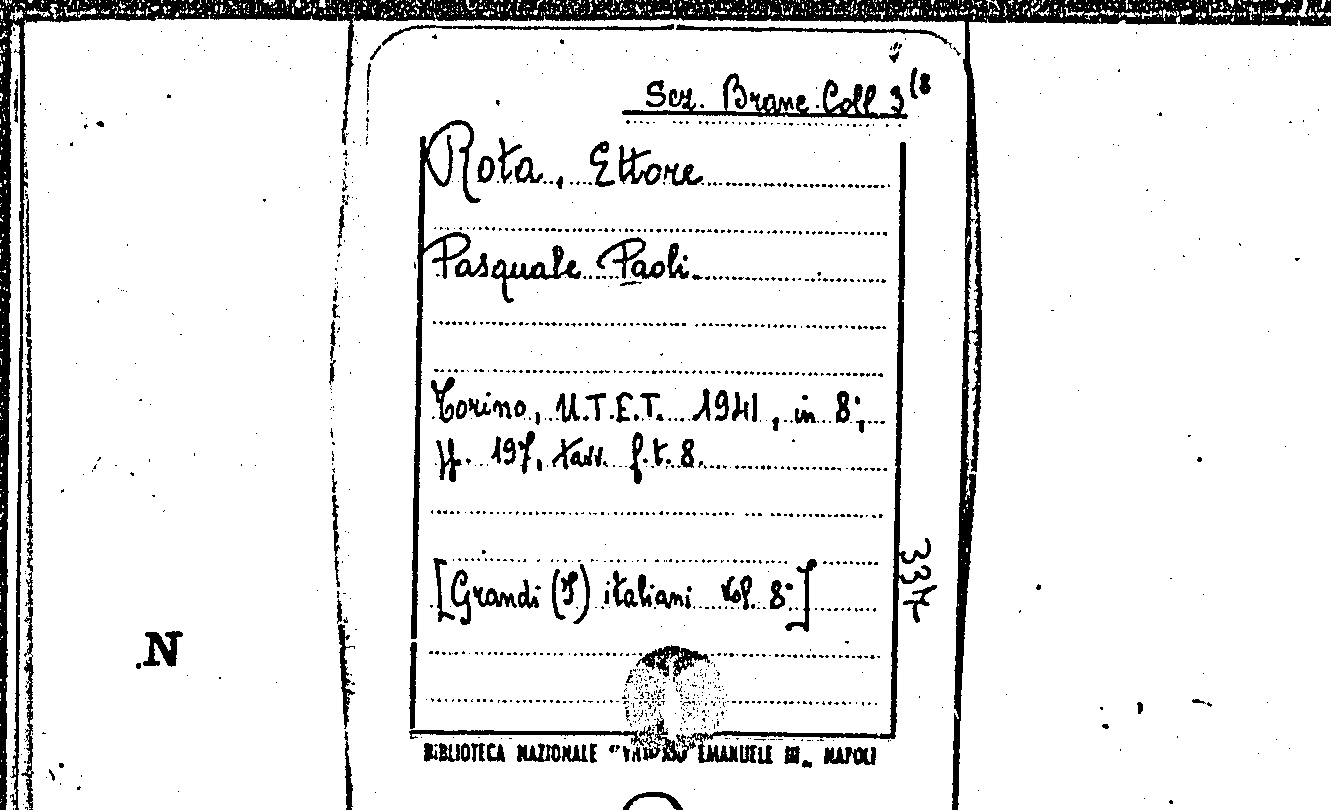 Sez. Branc. Coll 3(8
Rota, Ettore
Pasquale Paoli.
Torino, U.T.E.T. 1941, in 8°,
pp. 197, tavv. f.t. 8.
[Grandi (I) italiani vol. 8°]
337
N
BIBLIOTECA NAZIONALE "VITTORIO EMANUELE III„ NAPOLI